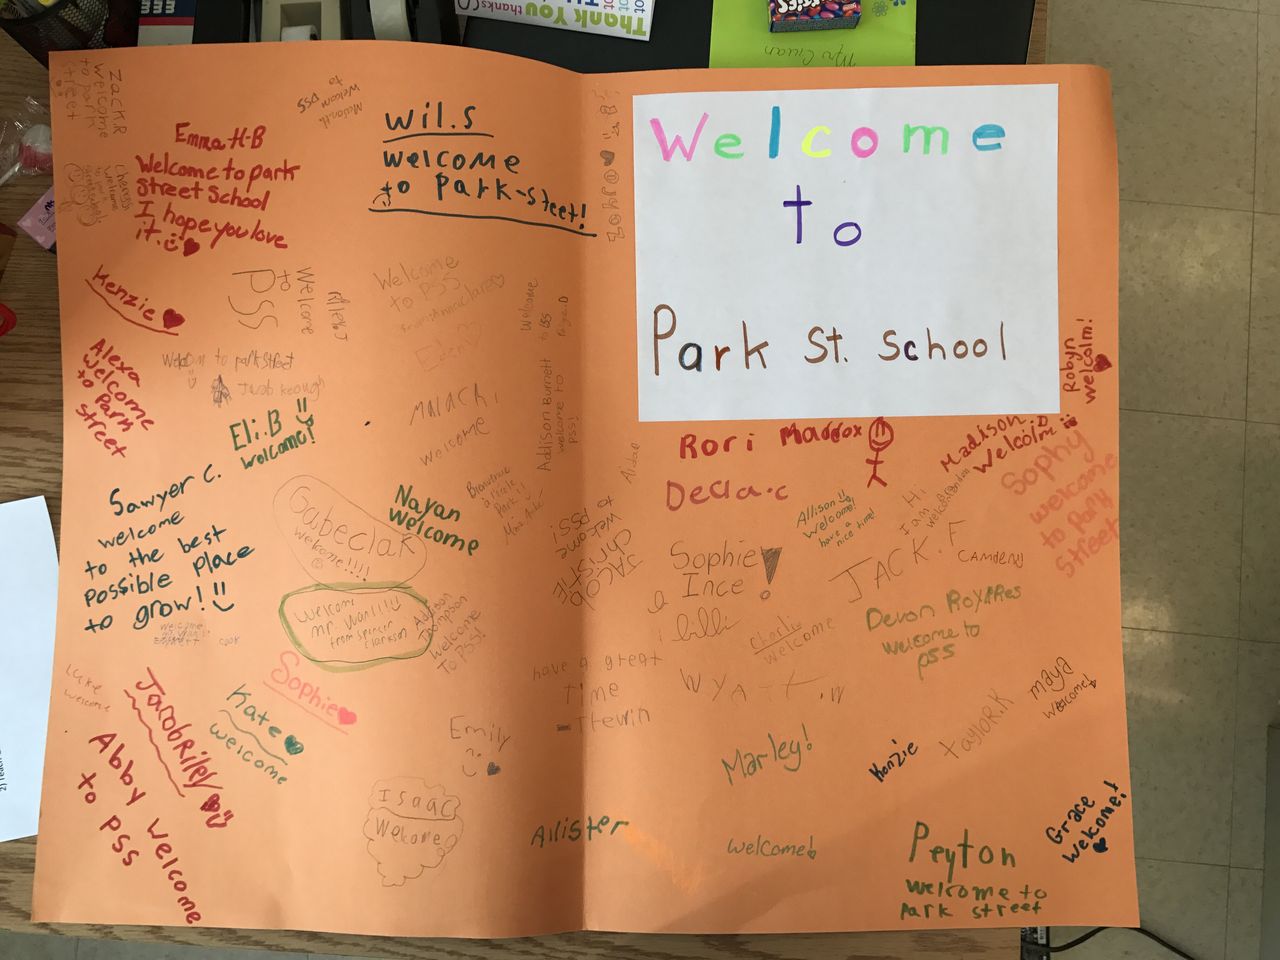 Thank You
thanks
Mr Cwan
Welcome
to
Park St. School
Zack.R
welcome
to park
street
Mason.H
Welcom
to
PSS
Emma H-B
Welcome to park
street School
I hope you love
it.
wil.s
welcome
to Park-steet!
Kenzie
PSS
to
Welcome
Welcome
to PSS
from: Annaclare
Eden
Welcome
to PSS
Alexa
welcome
to Park
street
Welcom to park street
Jacob keough
Eli.B
welcome!
Malachi
welcome
Addison Burnett
welcome to
PSS!
Aidan
Robyn
welcolm!
Rori Maddox
Decla.c
Madison.D
Welcolm
Sophy
welcome
to Park
Street
Sawyer C.
welcome
to the best
possible place
to grow!
Gabeclak
welcome!!!!
Nayan
Welcome
Bienvenue
Park!!
Jacob
Christie
Welcome
to PSS!
Allison!!
Welcome!
have a
nice time!
Hi
I am
JACK.F
Camden
Sophie
Ince
Billi
Charlie
welcome
Devon Roy
welcome to
PSS
Welcome
mr. Wan!!!!
from spencer
clarkson
Addison
Thompson
Welcome
To PSS!
Luke
welcome
Jacob Riley
Kate
welcome
Sophie
have a great
Time
Wyatt.W
maya
welcome!
Taylor.K
Emily
Marley!
Kenzie
Abby welcome
to PSS
Isaac
Welcome
Allister
welcome!
Peyton
welcome to
park street
Grace
welcome!